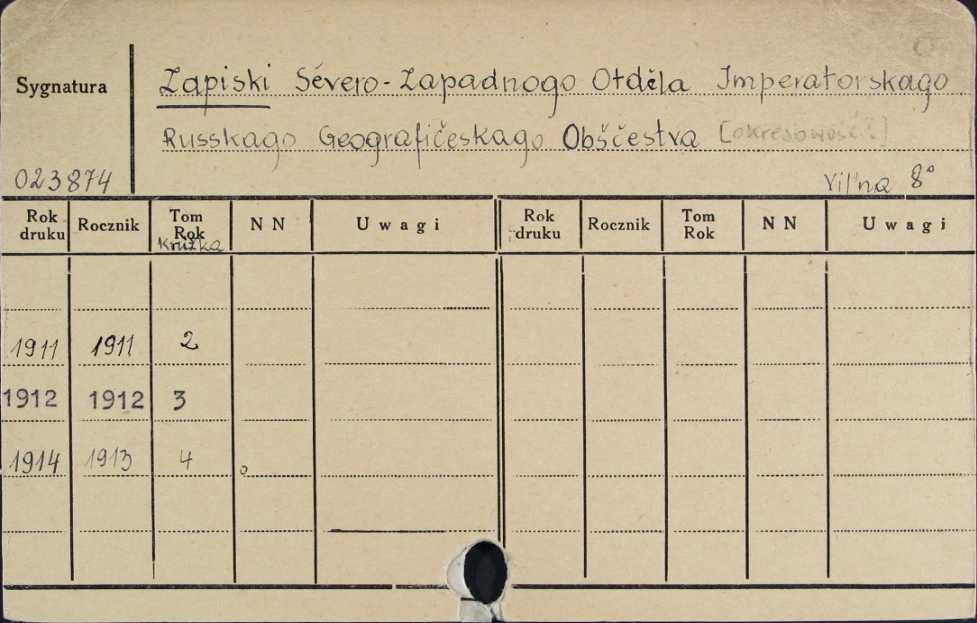 Sygnatura
Zapiski Sévero-Zapadnogo Otděla Imperatorskago
Russkago Geografičeskago Obščestva [okresowość?]
023874
Vil'na 8°
Rok druku Rocznik Tom Rok Knižka N N U w a g i Rok druku Rocznik Tom Rok N N U w a g i
1911 1911 2
1912 1912 3
1914 1913 4